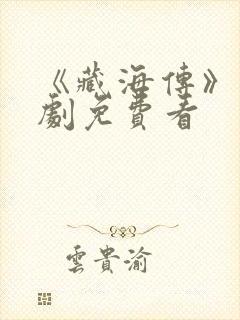 《藏海傳》
劇免費看
雲貴渝